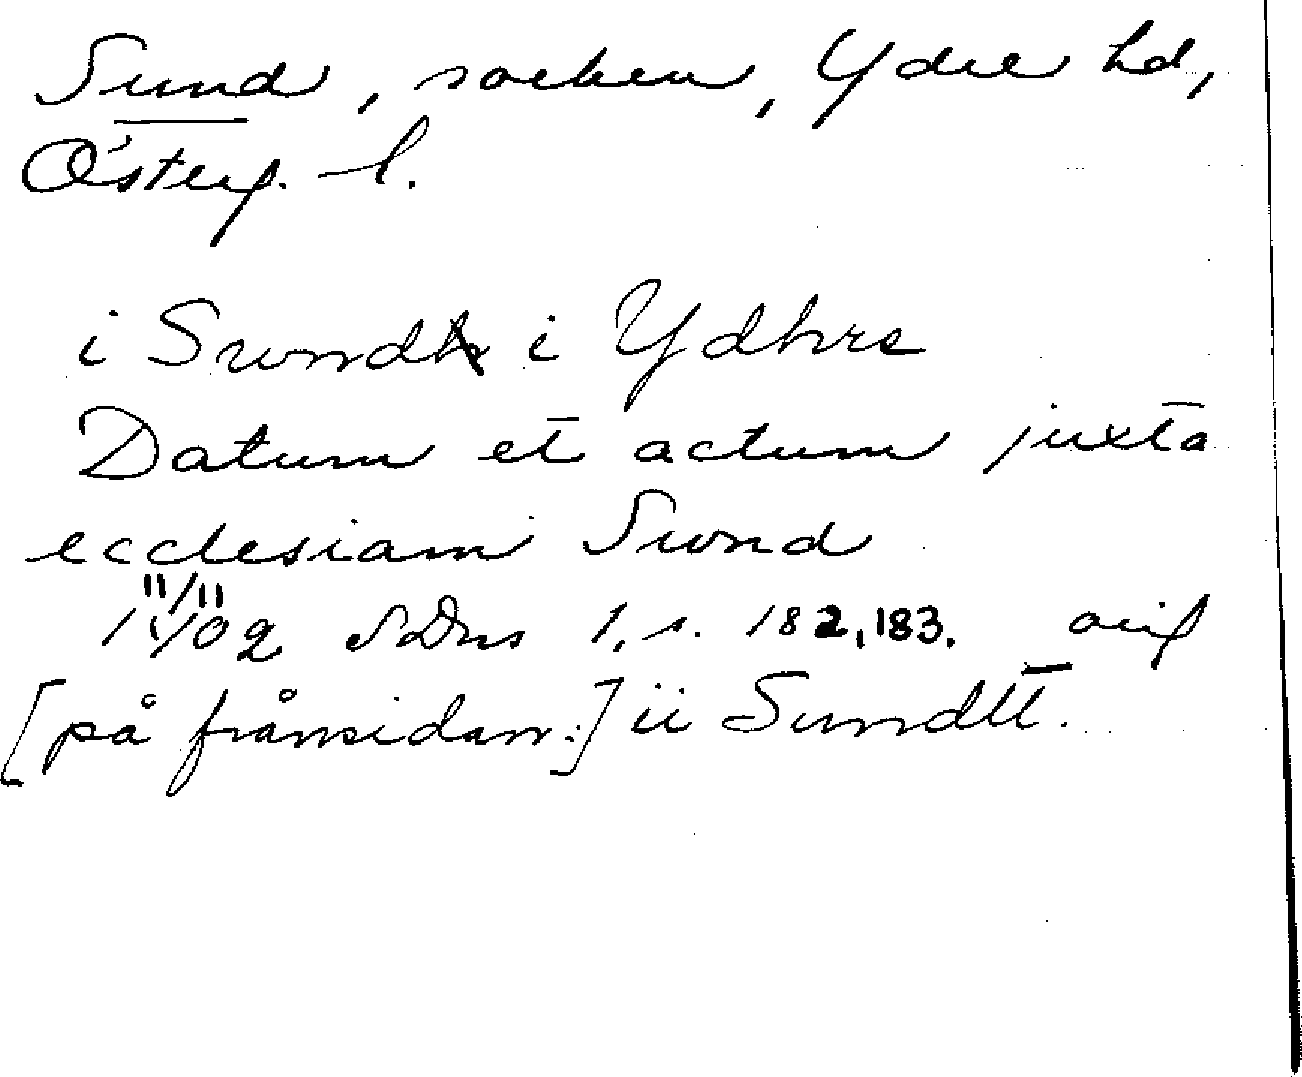 Sund, socken, Ydre hd,
Österg. l.
i Swndh i Ydhre
Datum et actum juxta
ecclesiam Swnd
11/11
1402 SDns 1, s. 182, 183. orig
[på frånsidan:] ii Sundtt.